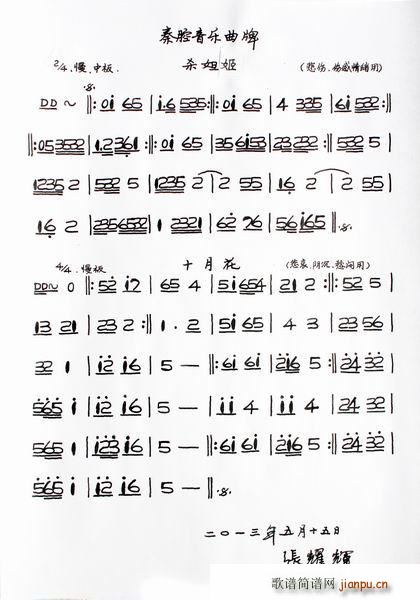 秦腔音乐曲牌
2/4、慢、中板. 杀妲姬 (悲伤、伤感情绪用)
DD～ |: 0i 65 | i·6 535 :||: 0i 65 | 4 335 | 6532 :||
||: 053532 | 1·2361 :||: 0i 65 | 356153 | 23232 :|| 532 5 |
1235 2 | 532 5 | 1235 2 | 2 55 | 16 2 | 2 55 |
16 2 | 2356532 | 1 2321 | 62 76 | 56 165 ||
4/4、慢板 十月花 (悲哀、阴沉、愁闷用)
DD～ 0 ||: 52 i7 | 65 4 | 5i654 | 21 2 :||: 5 5 |
13 21 | 23 2 :|| 1 . 2 | 5i 65 | 4 3 | 23 56 |
32 1 | i2 i6 | 5 — ||: 6i 6i | 2i6 5 :|| 24 32 |
565 i | i2 i6 | 5 — | ii 4 | ii 4 | 24 32 |
565 i | i23 i6 | 5 — ||: 6i 6i | 2i6 5 :|| 24 32 |
565 i | i2 i6 | 5 — ||
二〇一三年五月十五日
張耀輝
歌谱简谱网
jianpu.cn